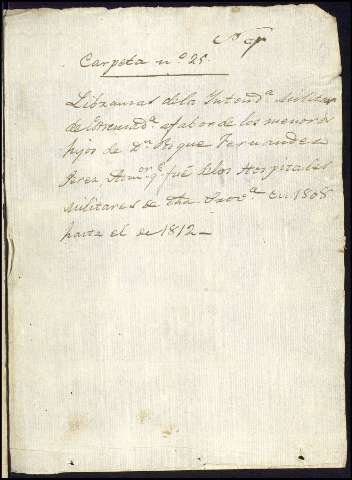 Carpeta nº 25.
Libranzas de la Intendª. Militar
de Estremadª. a fabor de los menores
hijos de Dn. Roque Fernandez
Perez Admor. qe. fué de los Hospitales
Militares de dha. Provª. en 1808
hasta el de 1812_